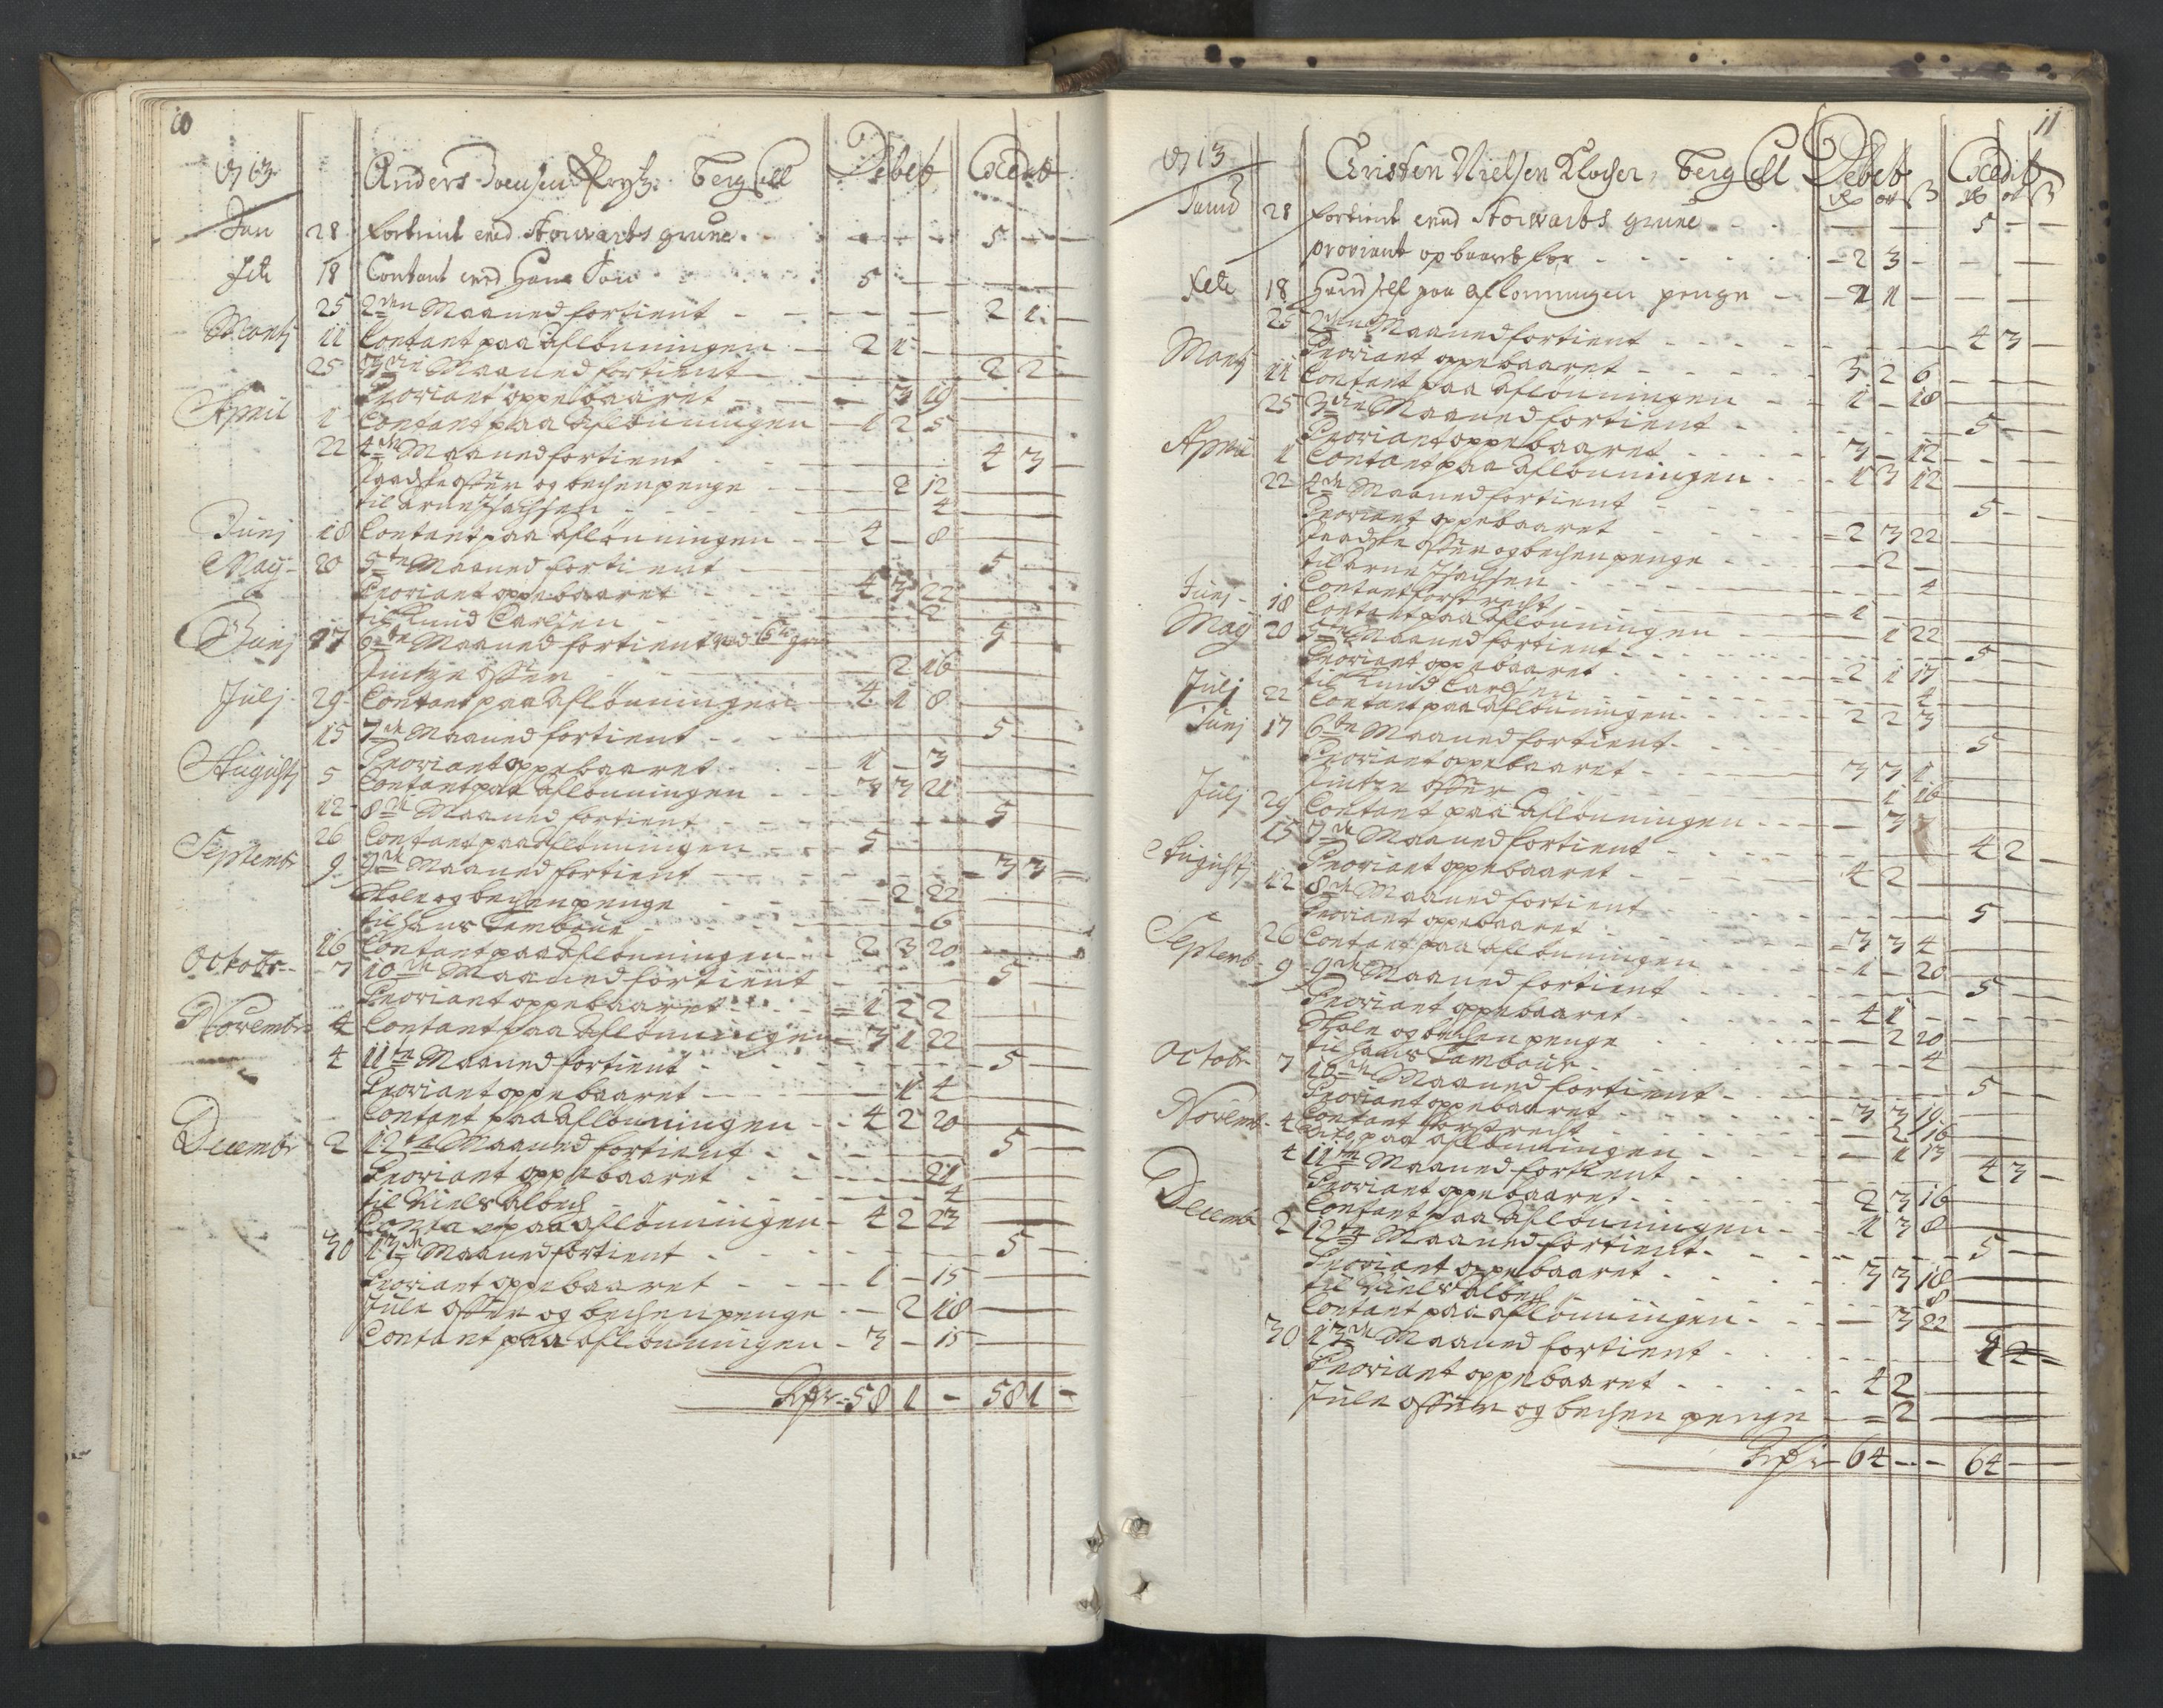 10
1713 Anders Joensen Prytz Berg Ell Debet Credit
Jan 28 fortient ved Storwarts grune 5 - -
Feb 18 Contant ved Hans 5 - -
25 2den Maaned fortient 2 1 -
Martj 11 Contant paa aflönningen 2 1 -
25 3die Maaned fortient 2 2 -
Proviant oppebaaret - 3 19
April 1 Contant paa aflönningen 1 2 5
22 4de Maaned fortient 4 3 -
Paaske offer og bechenpenge - 2 12
til Arne Isachsen 4
Junj 18 Contant paa aflönningen 4 - 8
Maij 20 5te Maaned fortient 5 - -
Proviant oppebaaret 4 3 22
til Knud Carlsen 2
Junj 17 6te Maaned fortient ved 5 -
Pintze offer - 2 16
Julj 29 Contant paa aflönningen 4 1 8
15 7de Maaned fortient 5 -
Proviant oppebaaret 1 - 3
Augustj 5 Contant paa aflönningen 3 3 21
12 8de Maaned fortient 5
26 Contant paa aflönningen 5 -
Septembr 9 9de Maaned fortient 3 3 -
Skole og bechenpenge - 2 22
til Hans Tambour 6
16 Contant paa aflönningen 2 3 20
Octobr 7 10de Maaned fortient 5 -
Proviant oppebaaret 1 2 2
Novembr 4 Contant paa aflönningen 3 1 22
4 11te Maaned fortient 5 -
Proviant oppebaaret - 1 4
Contant paa aflönningen 4 2 20
Decembr 2 12te Maaned fortient 5 -
Proviant oppebaaret 21
til Niels Albech 4
Contant paa aflönningen 4 2 23
30 13de Maaned fortient 5 -
Proviant oppebaaret 1 - 15
Jule offer og bechenpenge - 2 18
Contant paa aflönningen 3 - 15
58 1 - 58 1 -
11
1713 Christen Nielsen Klocher Berg Ell Debet Credit
Januar 28 fortient ved Storwarts grune 5 - -
proviant opbaaret for 2 3 -
Feb 18 Hands self paa aflönningen penge - 1 1
25 2den Maaned fortient 4 3 -
Proviant oppebaaret 3 2 6
Martj 11 Contant paa aflönningen 1 - 18
25 3die Maaned fortient 5 -
Proviant oppebaaret 3 - 12
April 1 Contant paa aflönningen 1 3 12
22 4de Maaned fortient 5 -
Proviant oppebaaret 2 3 22
Paaske offer og bechenpenge - 2 -
til Arne Isachsen 4
Junj 18 Contant forstrecht 1 -
Contant paa aflönningen - 1 22
Maij 20 5te Maaned fortient 5 -
Proviant oppebaaret 2 1 17
til Knud Carlsen 4
Julj 22 Contant paa aflönningen 2 2 3
Junj 17 6te Maaned fortient 5
Proviant oppebaaret 3 3 1
Pintze offer - 1 16
Julj 29 Contant paa aflönningen - 3
15 7de Maaned fortient 4 2 -
Proviant oppebaaret 4 2
Augustj 12 8de Maaned fortient 5 -
Proviant oppebaaret 3 3 4
26 Contant paa aflönningen 1 - 20
Septemb 9 9de Maaned fortient 5 -
Proviant oppebaaret 4 1 -
Skole og bechen penge - 2 20
til Hans Tambour 4
Octobr 7 10de Maaned fortient 5 -
Proviant oppebaaret 3 3 19
Novemb 4 Contant forstrecht - 2 16
Dito paa aflönningen - 1 13
4 11te Maaned fortient 4 3 -
Proviant oppebaaret 2 3 16
Contant paa aflönningen 1 3 8
Decemb 2 12te Maaned fortient 5 -
Proviant oppebaaret 3 3 18
til Niels Albech 8
Contant paa aflönningen - 3 22
30 13de Maaned fortient 4 2
Proviant oppebaaret 4 2
Jule offer og bechen penge - 2 -
64 - - 64 - -